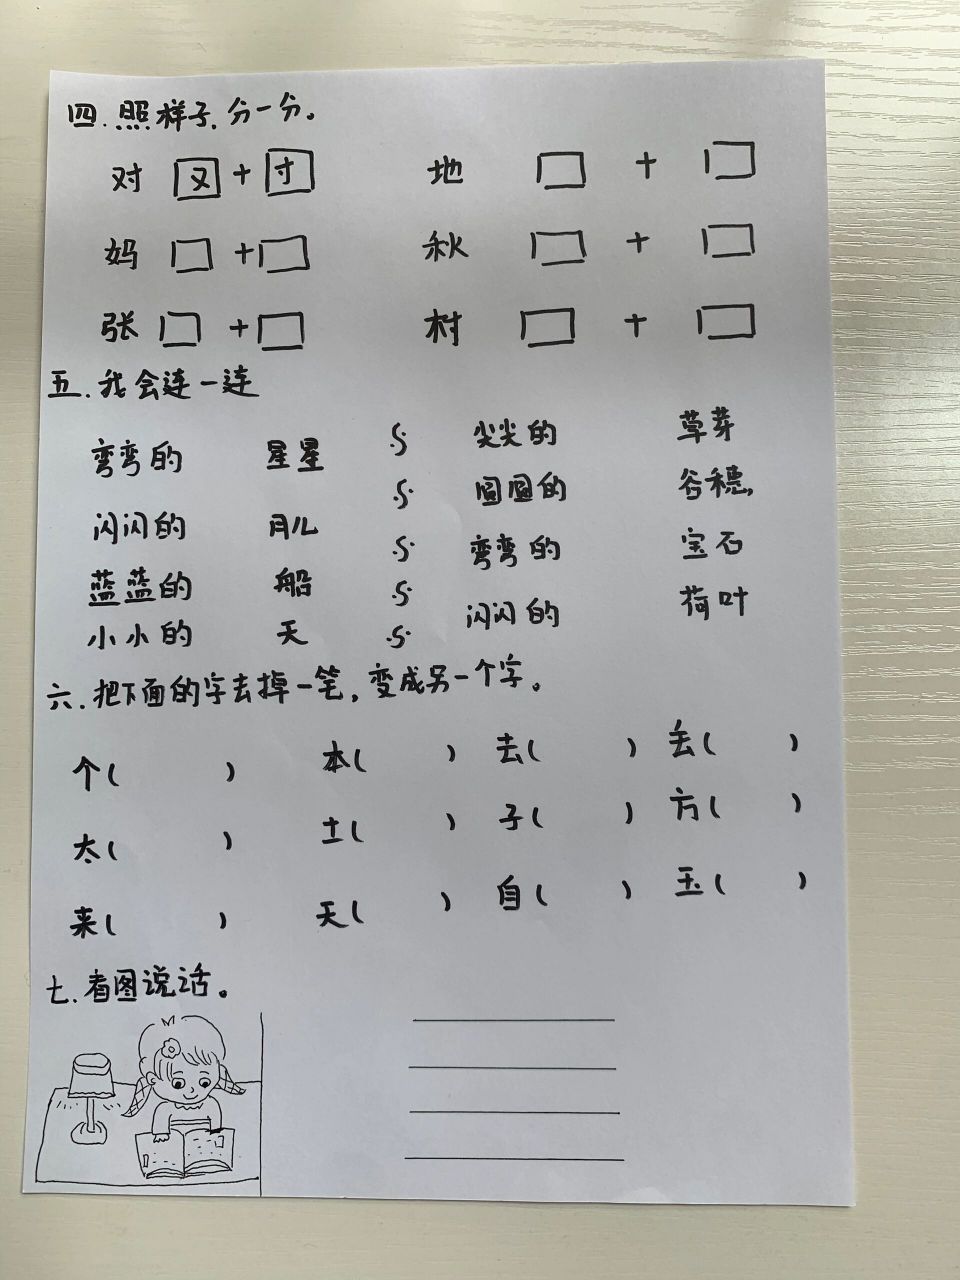 四.照样子,分一分。
对 叉+寸 地 +
妈 + 秋 +
张 + 村 +
五.我会连一连
弯弯的 星星 尖尖的 草芽
闪闪的 月儿 圆圆的 谷穗
蓝蓝的 船 弯弯的 宝石
小小的 天 闪闪的 荷叶
六.把下面的字去掉一笔,变成另一个字。
个( ) 本( ) 去( ) 丢( )
太( ) 土( ) 子( ) 方( )
来( ) 天( ) 自( ) 玉( )
七.看图说话。